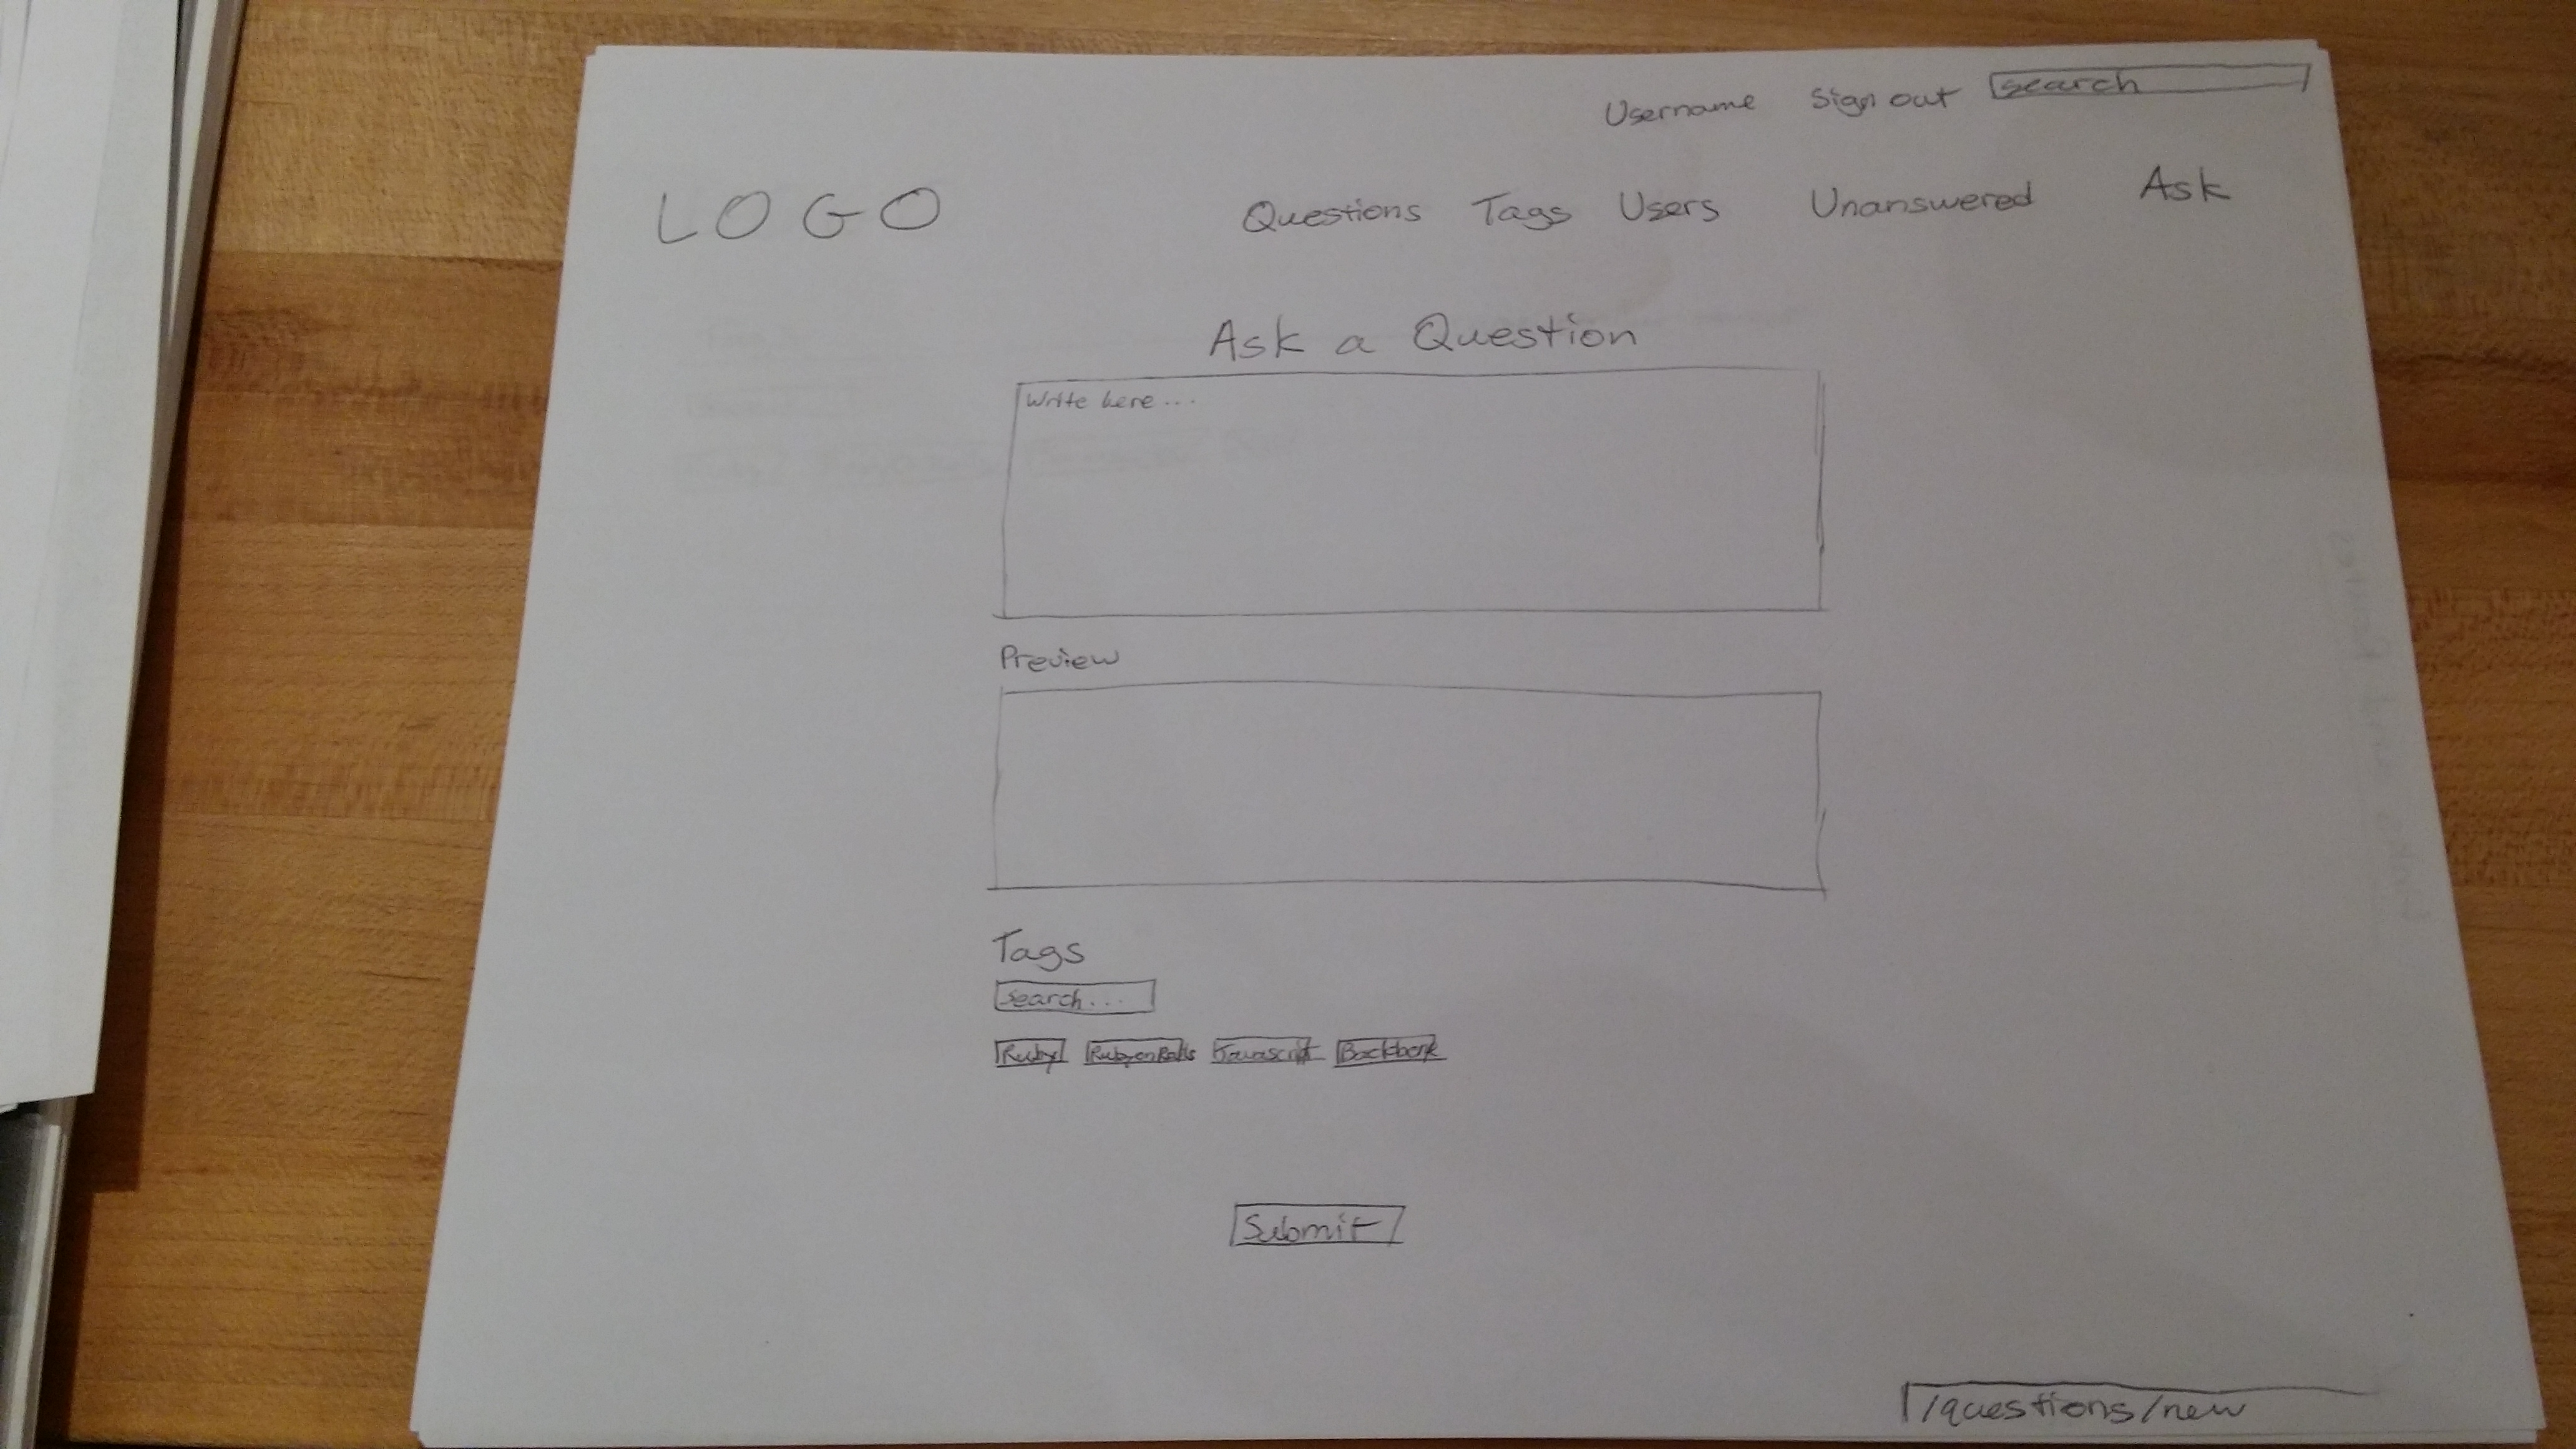 Username Sign out search
LOGO Questions Tags Users Unanswered Ask
Ask a Question
Write here ...
Preview
Tags
search...
Ruby Ruby on Rails Javascript Backbone
Submit
/questions/new